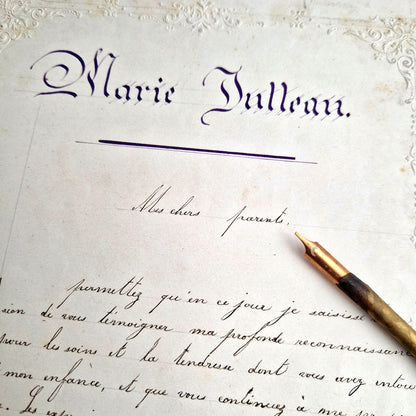 Marie Julleau.
Mes chers parents,
permettez qu'en ce jour je saisisse
sion de vous témoigner ma profonde reconnaissance
pour les soins et la tendresse dont vous avez
mon enfance, et que vous continuez à me
Les